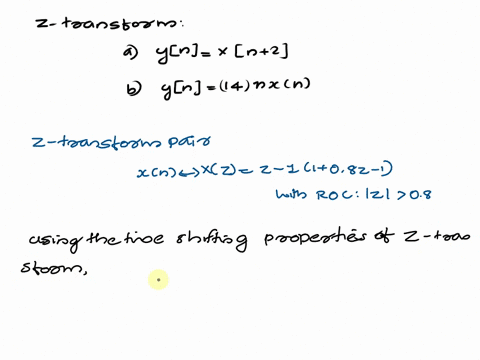 Z-transform:
a) y[n] = x[n+2]
b) y[n] = (14) n x(n)
Z-transform pair
x(n) ↔ X(Z) = Z-1(1+0.8Z-1)
with ROC: |Z| > 0.8
using the time shifting properties of Z-tran
sform,